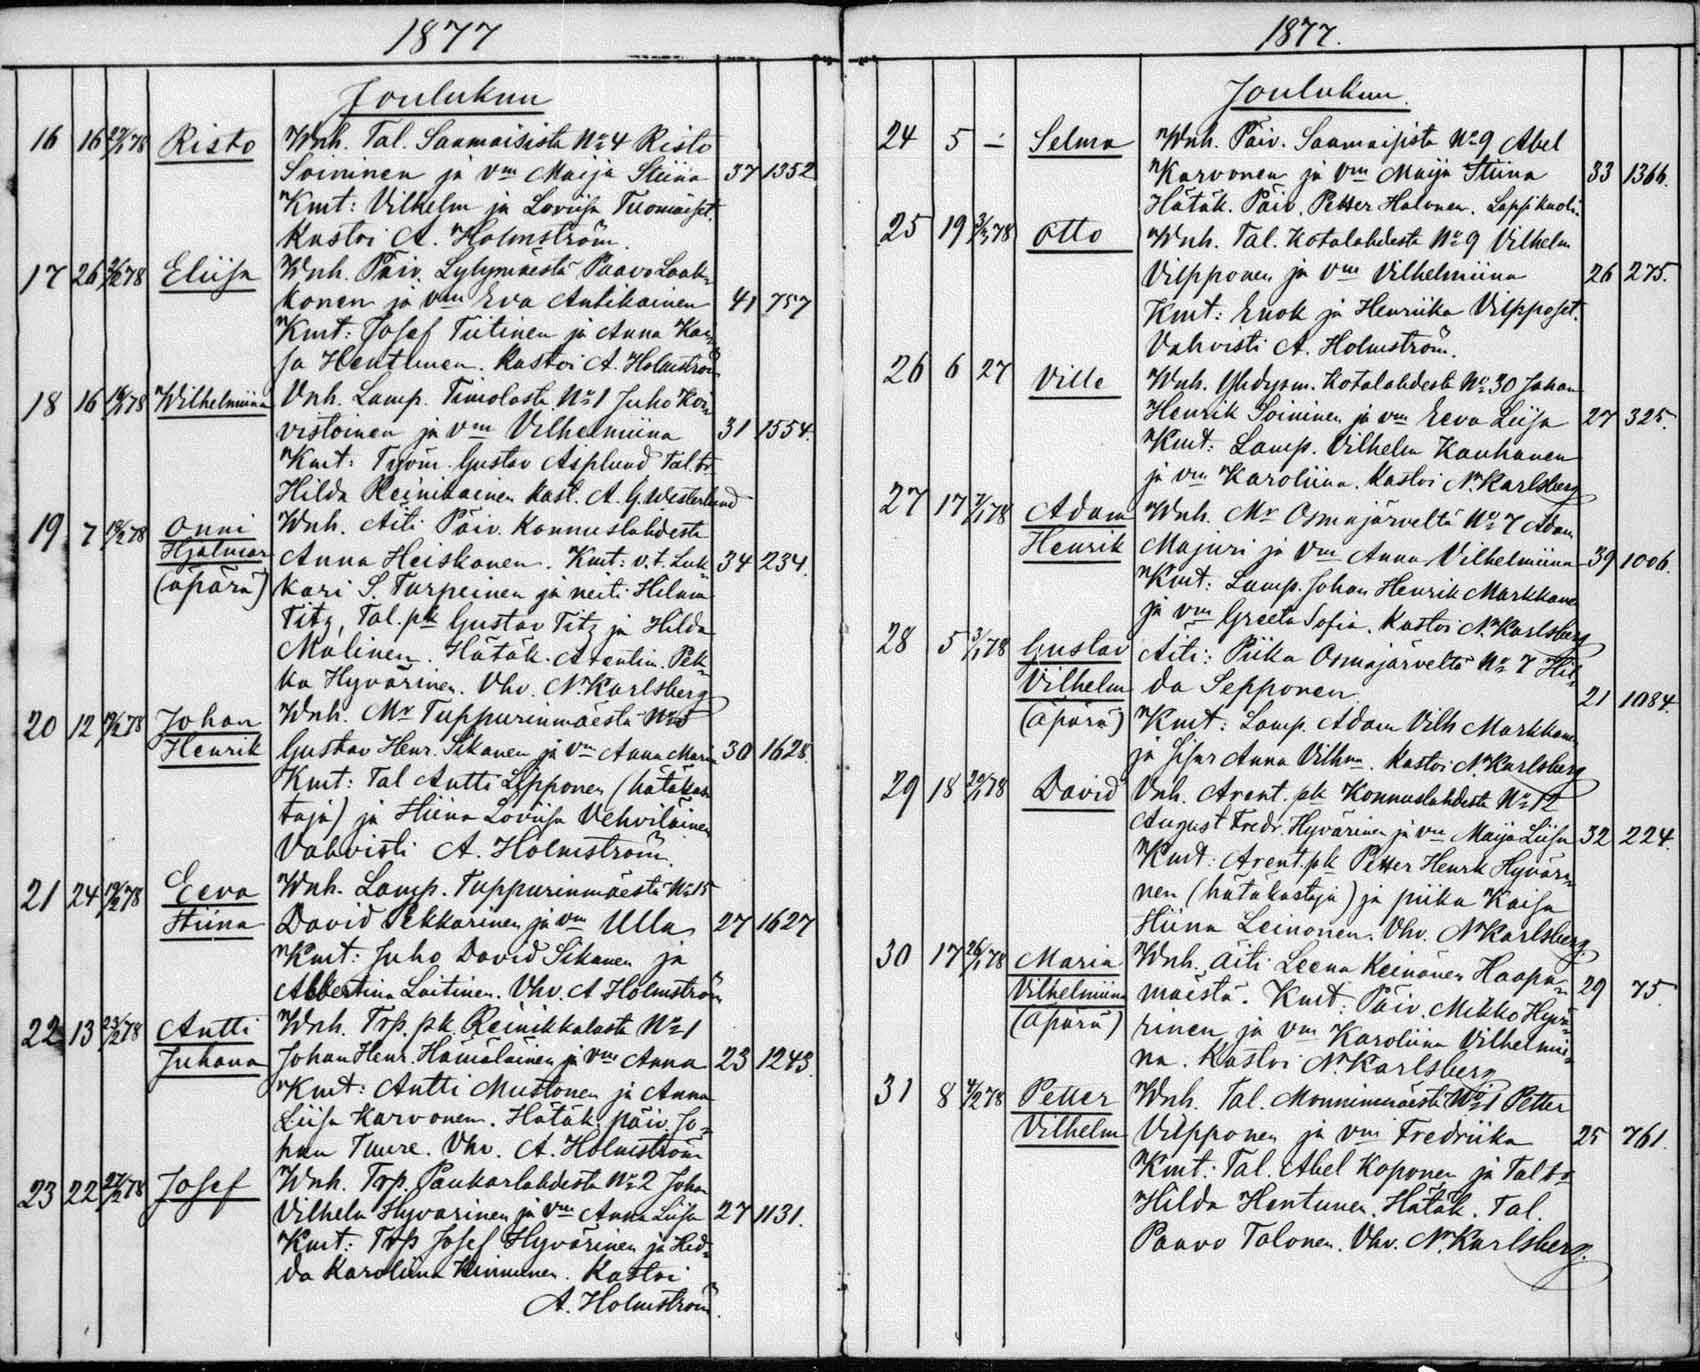 1877
Joulukuu
16 16 29/1 78 Risto Wnh. Tal. Saamaisista No 4 Risto
Soininen ja vm Maija Stiina 37 1352
Kmt: Vilhelm ja Loviisa Tuomaiset.
Kastoi A. Holmström.
17 26 78 Eliisa Wnh. Päiv. Lylymäestä Paavo Laak-
konen ja vm Eva Antikainen 41 757
Kmt: Josef Tiitinen ja Anna Kai-
sa Hentunen. Kastoi A. Holmström
18 16 78 Wilhelmiina Vnh. Lamp. Timolasta No 1 Juho Koi-
vistoinen ja vm Vilhelmiina 31 1554.
Kmt: Työm. Gustav Asplund Tal. tr
Hilda Reinikainen Kast. A. G. Westerlund
19 7 78 Onni Wnh. Äiti Päiv. Konnuslahdesta
Hjalmar Anna Heiskanen. Kmt: v.t. Luk- 34 234.
(äpärä) kari S. Turpeinen ja neiti Hilma
Titz, Tal. pk Gustav Titz ja Hilda
Malinen. Hätäk. Arentin. Pek-
ka Hyvärinen. Vhv. N. Karlsberg
20 12 78 Johan Wnh. Mr Tuppurinmäestä No 5
Henrik Gustav Henr. Sikanen ja vm Anna Maria 30 1628.
Kmt: Tal Antti Lipponen (hätäkas-
taja) ja Stiina Loviisa Vehviläinen
Vahvisti A. Holmström.
21 24 78 Eeva Wnh. Lamp. Tuppurinmäestä No 15
Stiina David Pekkarinen ja vm Ulla 27 1627
Kmt: Juho David Sikanen ja
Albertina Laitinen. Vhv. A Holmström
22 13 78 Antti Wnh. Trp. pk. Reinikkalasta No 1
Juhana Johan Henr. Hämäläinen ja vm Anna 23 1243.
Kmt: Antti Mustonen ja Anna
Liisa Karvonen. Hätäk. päiv. Jo-
han Tuure. Vhv. A. Holmström
23 22 27/12 78 Josef Wnh. Trp. Paukarlahdesta No 2 Johan
Vilhelm Hyvärinen ja vm Anna Liisa 27 1131.
Kmt: Trp Josef Hyvärinen ja Hed-
da Karoliina Kinnunen. Kastoi
A. Holmström.
1877.
Joulukuu.
24 5 – Selma Wnh. Päiv. Saamaisista No 9 Abel
Karvonen ja vm Maija Stiina 33 1366.
Hätäk. Päiv. Petter Halonen. Lapsi kuoli.
25 19 78 Otto Wnh. Tal. Kotalahdesta No 9 Vilhelm
Vilpponen ja vm Vilhelmiina 26 275.
Kmt: Enok ja Henriika Vilpposet.
Vahvisti A. Holmström.
26 6 27 Ville Wnh. Yhdysm. Kotalahdesta No 30 Johan
Henrik Soininen ja vm Eeva Liisa 27 325.
Kmt: Lamp. Vilhelm Kauhanen
ja vm Karoliina. Kastoi N. Karlsberg
27 17 78 Adam Wnh. Mr Osmajärveltä No 7 Adam
Henrik Majuri ja vm Anna Vilhelmiina 39 1006.
Kmt: Lamp. Johan Henrik Markkanen
ja vm Greeta Sofia. Kastoi N. Karlsberg
28 5 78 Gustav Äiti: Piika Osmajärveltä No 7 Hil-
Vilhelm da Sepponen 21 1084.
(äpärä) Kmt: Lamp. Adam Vilh Markkanen
ja sisar Anna Vilhna. Kastoi N. Karlsberg
29 18 20/1 78 David Vnh. Arent. pk Konnuslahdesta No 12
August Fredr. Hyvärinen ja vm Maija Liisa 32 224.
Kmt: Arent. pk Petter Henrk Hyväri-
nen (hätäkastaja) ja piika Kaisa
Stiina Leinonen. Vhv. N. Karlsberg.
30 17 26/1 78 Maria Wnh. Äiti Leena Keinänen Haapa-
Vilhelmiina mäestä. Kmt: Päiv. Mikko Hyvä- 29 75.
(äpärä) rinen ja vm Karoliina Vilhelmii-
na. Kastoi N. Karlsberg
31 8 4/2 78 Petter Wnh. Tal. Monninmäestä No 1 Petter
Vilhelm Vilpponen ja vm Fredriika 25 761.
Kmt: Tal. Abel Koponen ja Tal tr
Hilda Hentunen. Hätäk. Tal.
Paavo Talonen. Vhv. N. Karlsberg.